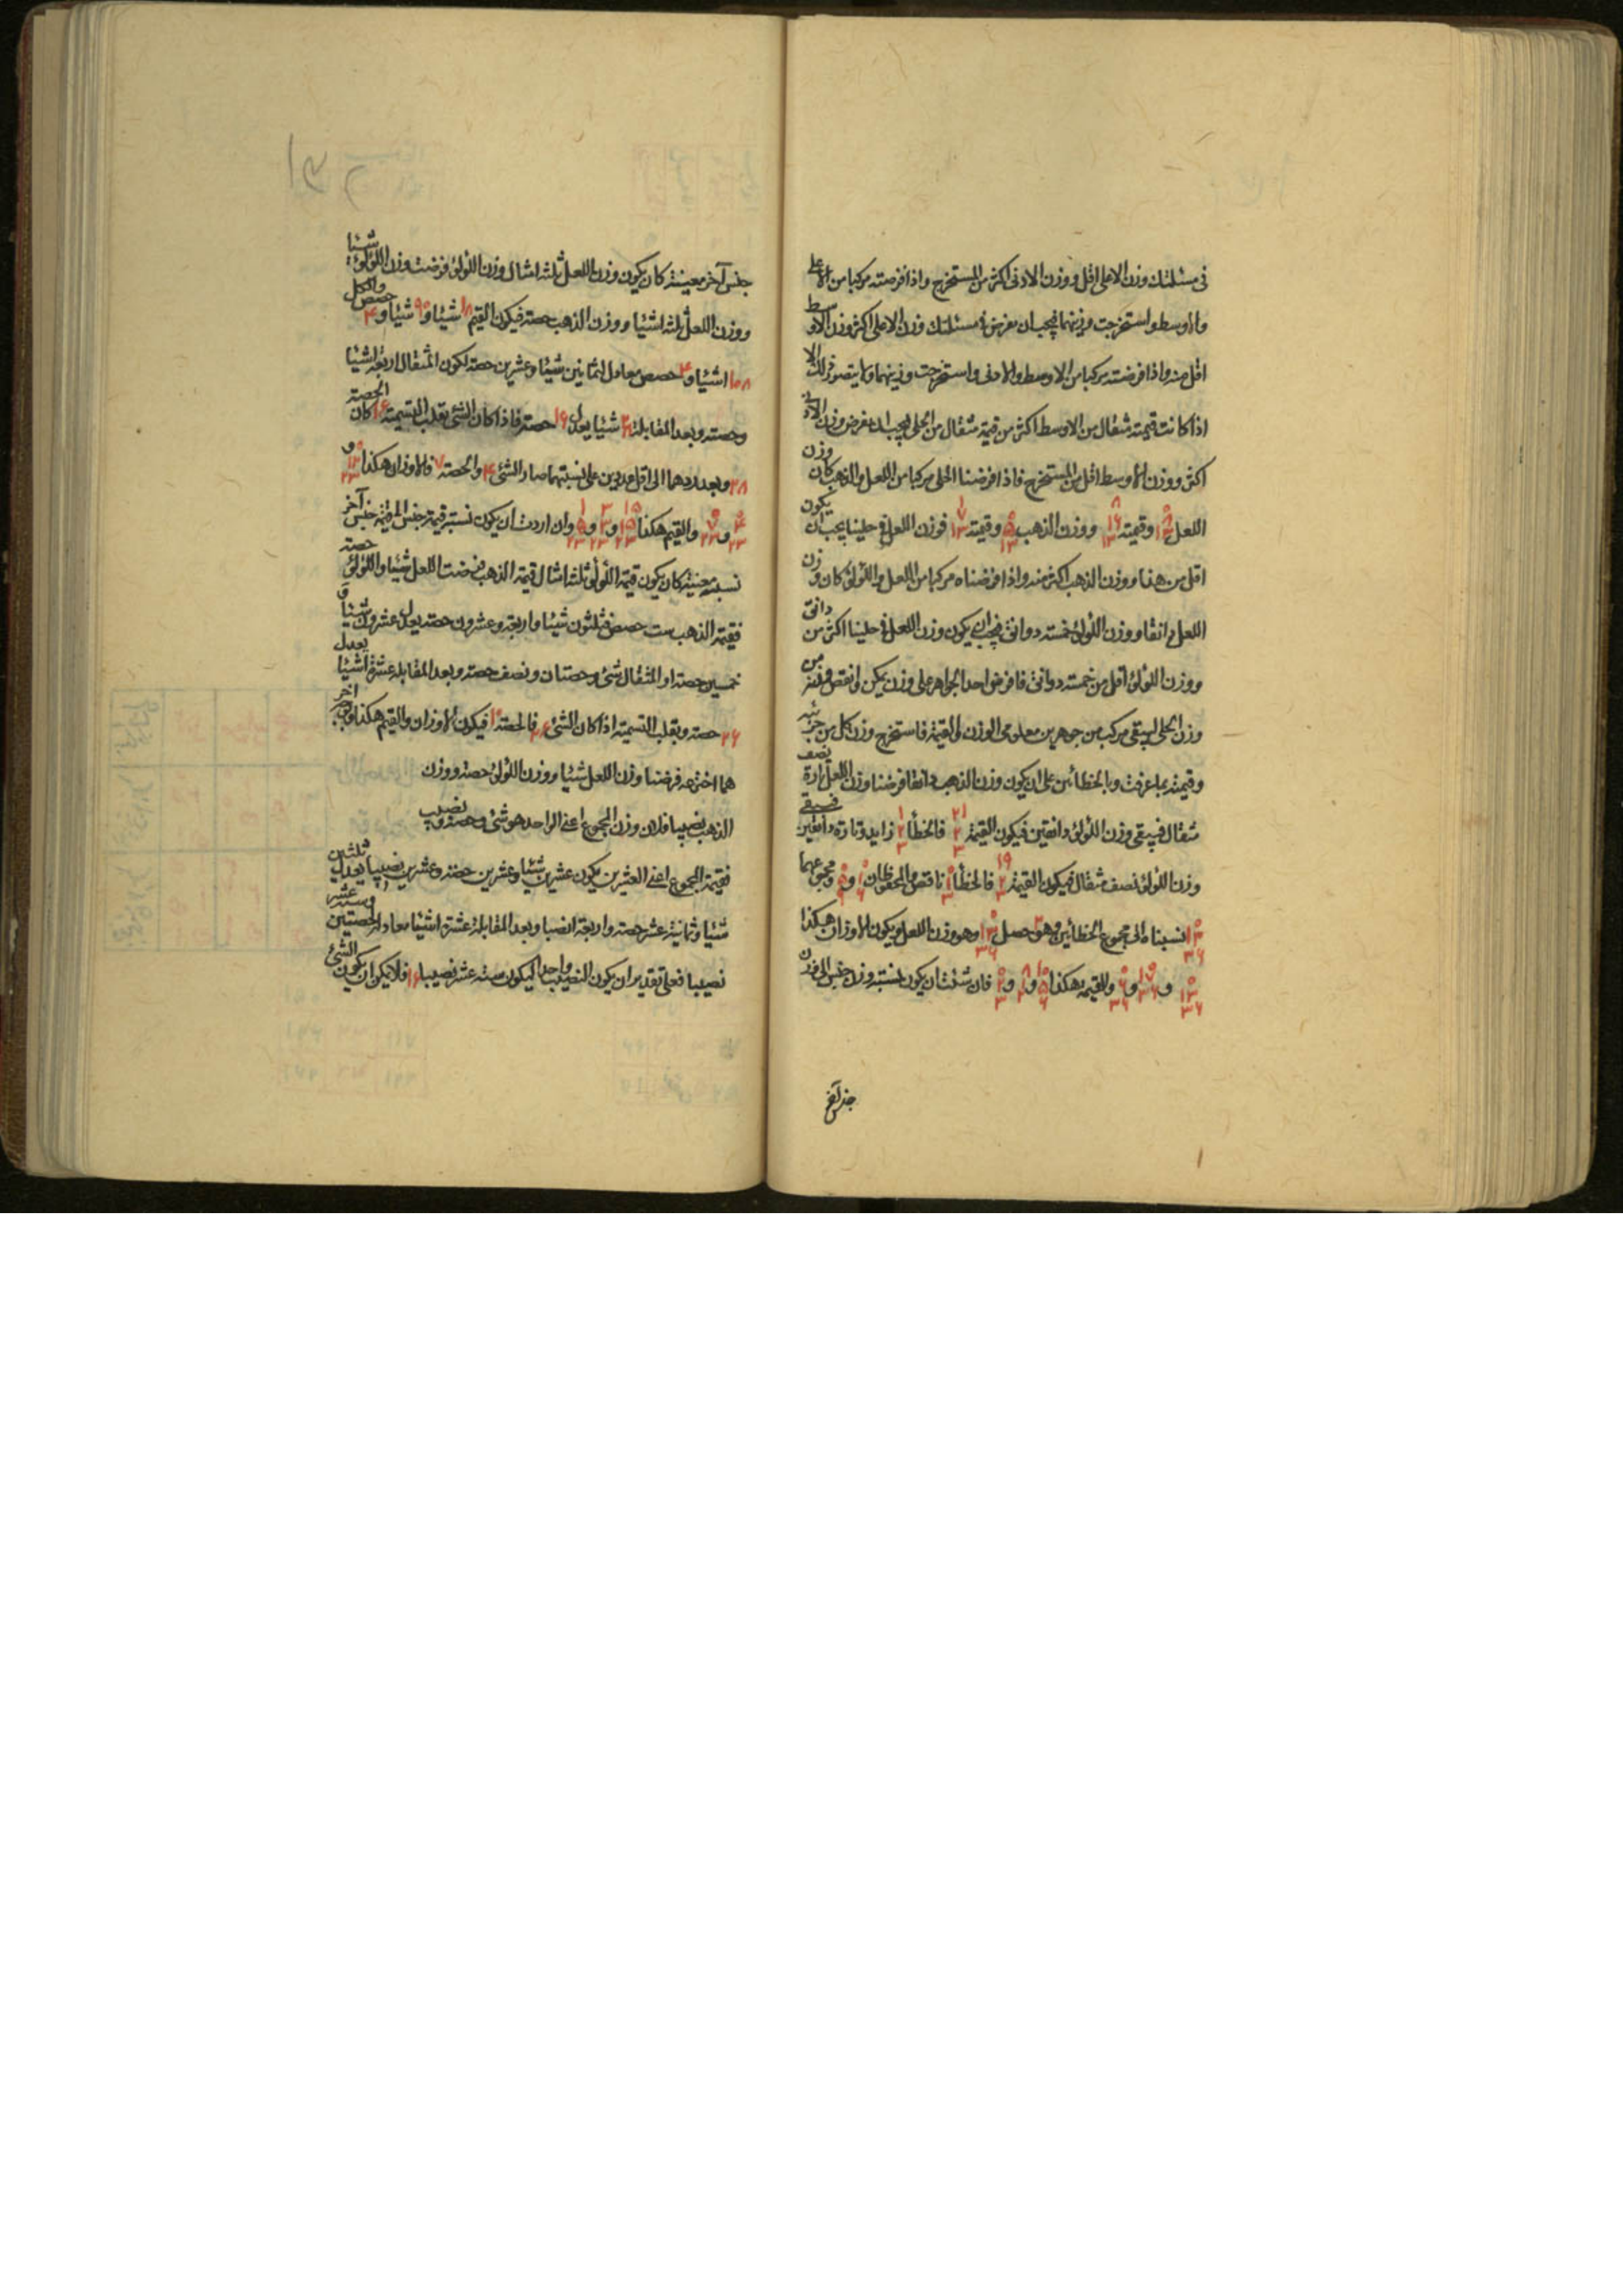 فى مسئلتك وزن الاعلى اقل ووزن الادنى اكثر من المستخرج واذا فرضته مركبا من الاعلى
والاوسط واستخرجت وزنيهما فيجب ان تفرض فى مسئلتك وزن الاعلى اكثر ووزن الاوسط
اقل منه واذا فرضته مركبا من الاوسط والادنى واستخرجت وزنيهما ولا يتصور ذلك الا
اذا كانت قيمة مثقال من الاوسط اكثر من قيمة مثقال من الحلى فيجب ان تفرض وزن الادنى
اكثر ووزن الاوسط اقل من المستخرج فاذا فرضنا الحلى مركبا من اللعل والذهب كان وزن
اللعل وقيمته ووزن الذهب وقيمته فوزن اللعل فى حلينا يجب ان يكون
اقل من هذا ووزن الذهب اكثر منه واذا فرضناه مركبا من اللعل واللؤلؤ كان وزن
اللعل دانقا ووزن اللؤلؤ خمسة دوانق فيجب ان يكون وزن اللعل فى حلينا اكثر من دانق
ووزن اللؤلؤ اقل من خمسة دوانق فافرض احد الجواهر على وزن يمكن وانقص من
وزن الحلى ليبقى مركب من جوهرين معلومى الوزن والقيمة فاستخرج وزن كل من جزئيه
وقيمته بما عرفت وبالخطأين على ان يكون وزن الذهب دانقا فرضنا وزن اللعل تارة نصف
مثقال فيبقى وزن اللؤلؤ دانقين فيكون القيمة ٢١ ٢ ٣ فالخطأ ١ ٢ ٣ زايد وتارة دانقين فيبقى
وزن اللؤلؤ نصف مثقال فيكون القيمة ١٩ فالخطأ ناقص والمحفوظان و ومجموعهما
نسبناه الى مجموع الخطأين وهو ٢ حصل وهو وزن اللعل ويكون الاوزان هكذا
و و والقيمة هكذا و و فان شئت ان يكون لنسبة وزن جنس الى وزن
جنس آخر
جنس آخر معينة كان يكون وزن اللعل ثلثة امثال وزن اللؤلؤ فرضت وزن اللؤلؤ شيئا
ووزن اللعل ثلثة اشيا ووزن الذهب حصة فيكون القيم ١٨ شيئا و ٩٠ شيئا و ٤ حصص والكل
١٠٨ اشيا و ٤ حصص معادل لثمانين شيئا وعشرين حصة لكون المثقال اربعة اشيا
وحصة وبعد المقابلة ٢٨ شيئا يعدل ١٦ حصة فاذا كان الشئ بقلب التسمية ١٦ كان الحصة
٢٨ وبعد ردهما الى اقل عددين على نسبتهما صار الشئ ٤ والحصة ٧ فالاوزان هكذا و
و والقيم هكذا و و وان اردت ان يكون نسبة قيمة جنس الى قيمة جنس آخر
نسبة معينة كان يكون قيمة اللؤلؤ ثلثة امثال قيمة الذهب فرضت اللعل شيئا واللؤلؤ حصة
فقيمة الذهب ست حصص فثلثون شيئا واربعة وعشرون حصة يعدل عشرين شيئا و
خمسين حصة او المثقال شئ وحصتان ونصف حصة وبعد المقابلة عشرة اشيا يعدل
٢٦ حصة وبقلب التسمية اذا كان الشئ ٢٦ فالحصة ١٠ فيكون الاوزان والقيم هكذا
هما اخترعه فرضنا وزن اللعل شيئا ووزن اللؤلؤ حصة ووزن
الذهب نصيبا فلان وزن المجموع اعنى الواحد هو شئ وحصة ونصيب
فقيمة المجموع اعنى العشرين يكون عشرين شيئا وعشرين حصة وعشرين نصيبا يعدل ثلثين
شيئا وثمانية عشر حصة واربعة انصبا وبعد المقابلة عشرة اشيا معادل لحصتين وستة عشر
نصيبا فعلى تقدير ان يكون النصيب واحدا ليكون ستة عشر نصيبا ١٦ فلا يمكن ان يكون الشئ